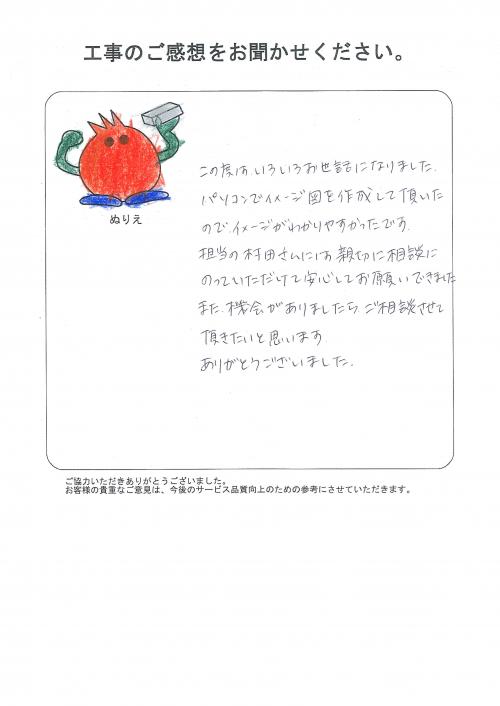 工事のご感想をお聞かせください。
ぬりえ
この度は、いろいろお世話になりました。
パソコンでイメージ図を作成して頂いた
のでイメージがわかりやすかったです。
担当の村田さんには親切に相談に
のっていただけて安心してお願いできました
また、機会がありましたら、ご相談させて
頂きたいと思います。
ありがとうございました。
ご協力いただきありがとうございました。
お客様の貴重なご意見は、今後のサービス品質向上のための参考にさせていただきます。